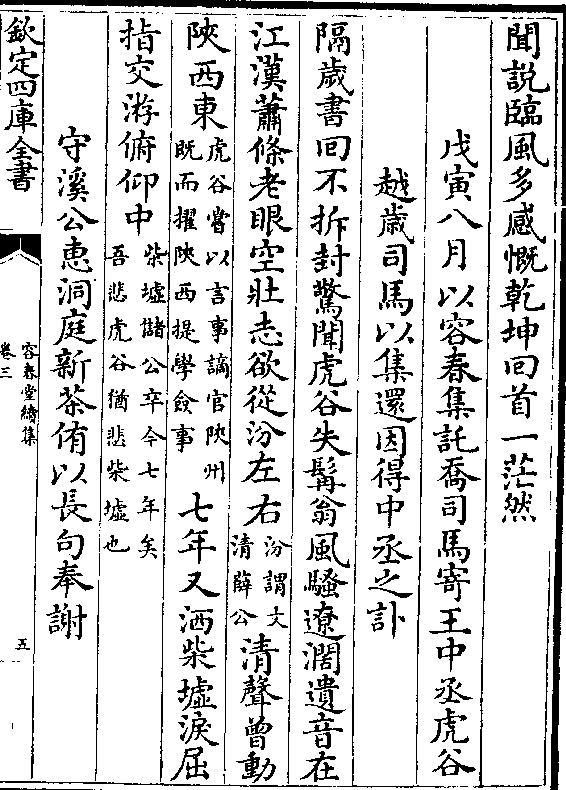 聞說臨風多感慨乾坤回首一茫然
戊寅八月以容春集託喬司馬寄王中丞虎谷
越歲司馬以集還因得中丞之訃
隔歲書回不拆封驚聞虎谷失髯翁風騷遼濶遺音在
江漢蕭條老眼空壯志欲從汾左右汾謂文清薛公清聲曾動
陜西東虎谷嘗以言事謫官陜州既而擢陜西提學僉事七年又洒柴墟淚屈
指交游俯仰中柴墟儲公卒今七年矣吾悲虎谷猶悲柴墟也
守溪公惠洞庭新茶侑以長句奉謝
欽定四庫全書
容春堂續集
卷三
五